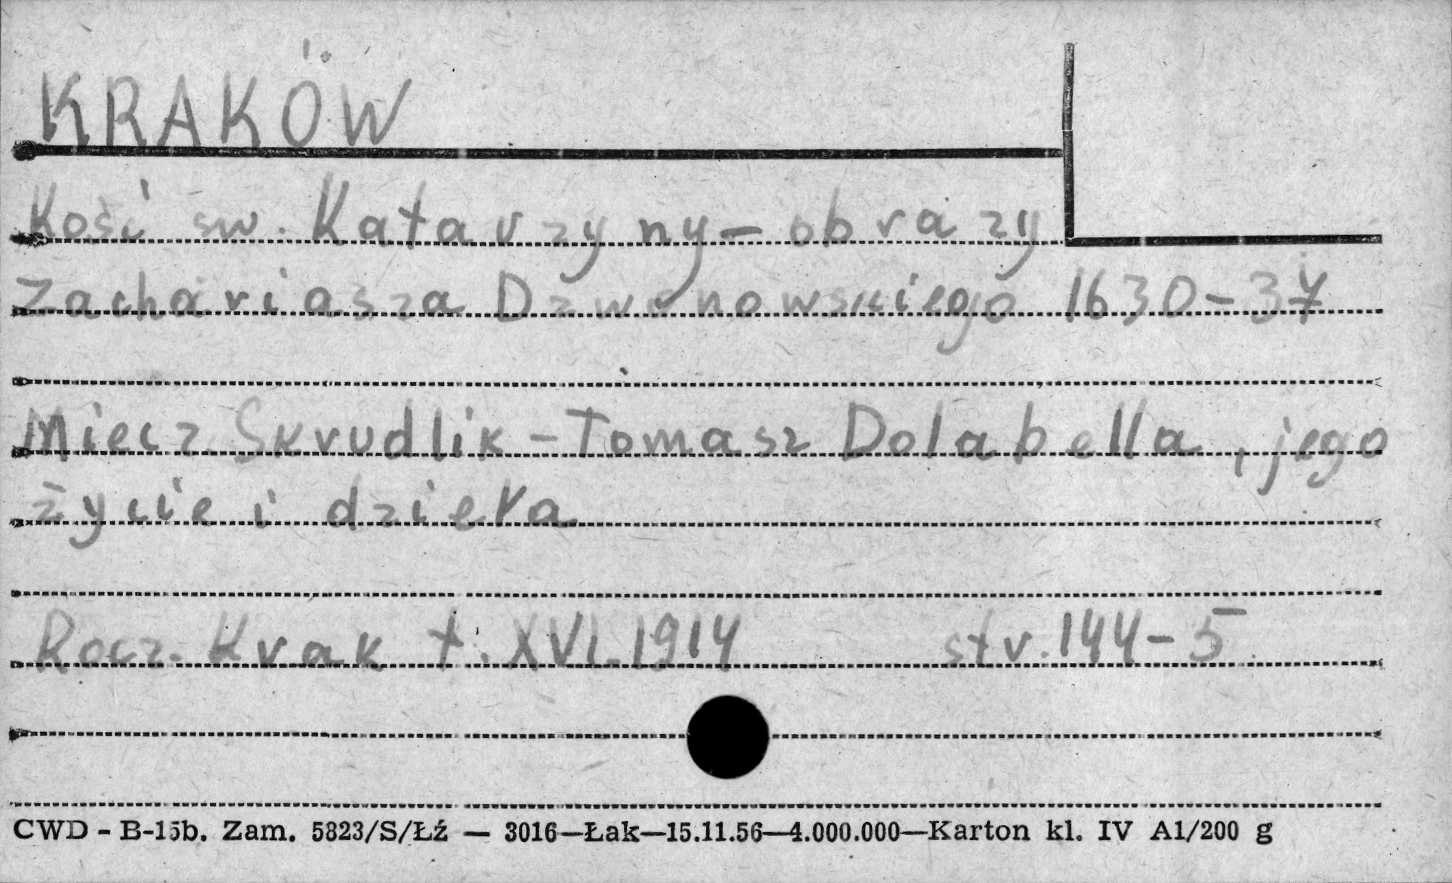 KRAKÓW
Kość św. Katarzyny – obrazy
Zachariasza Dzwonowskiego 1630 – 37
Miecz. Skrudlik – Tomasz Dolabella, jego
życie i dzieła
Rocz. Krak t. XVI. 1914 str. 144 – 5
CWD - B-15b. Zam. 5823/S/Łź — 3016—Łak—15.11.56—4.000.000—Karton kl. IV A1/200 g